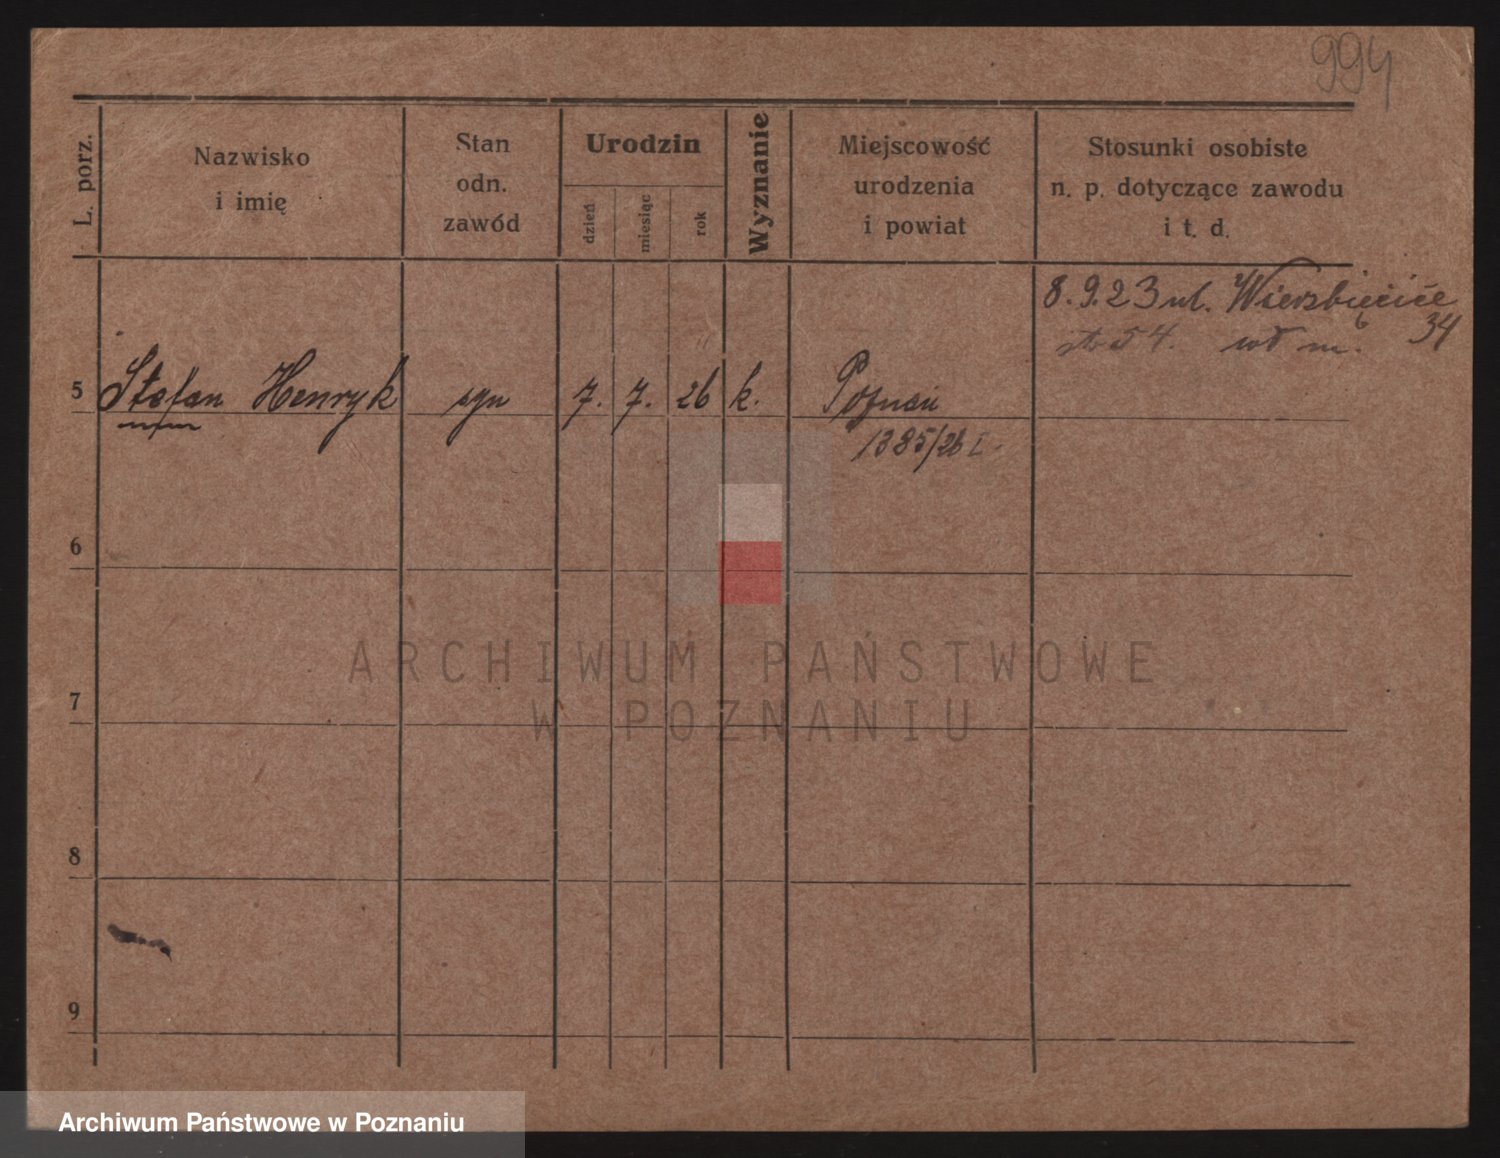 994
L. porz.
Nazwisko
i imię
Stan
odn.
zawód
Urodzin
dzień
miesiąc
rok
Wyznanie
Miejscowość
urodzenia
i powiat
Stosunki osobiste
n. p. dotyczące zawodu
i t. d.
8.9.23 ul. Wierzbięcice
34
5 Stefan Henryk syn 7. 7. 26 k. Poznań
1385/26 I.
6
7
8
9
ARCHIWUM PAŃSTWOWE
W POZNANIU
Archiwum Państwowe w Poznaniu